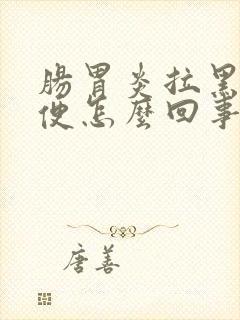 腸胃炎拉黑
便怎麼回事
唐善